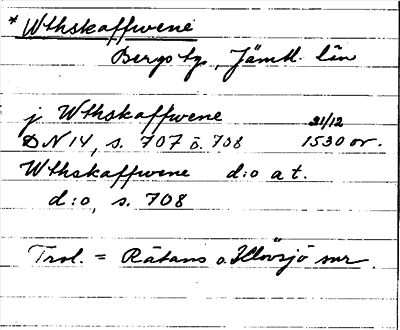 * Wthskaffwene
Bergs tg, Jämtl. län
j Wthskaffwene 31/12
DN 14, s. 707 o. 708 1530 or.
Wthskaffwene d:o a t.
d:o, s. 708
Trol. = Rätans o. Klövsjö snr.